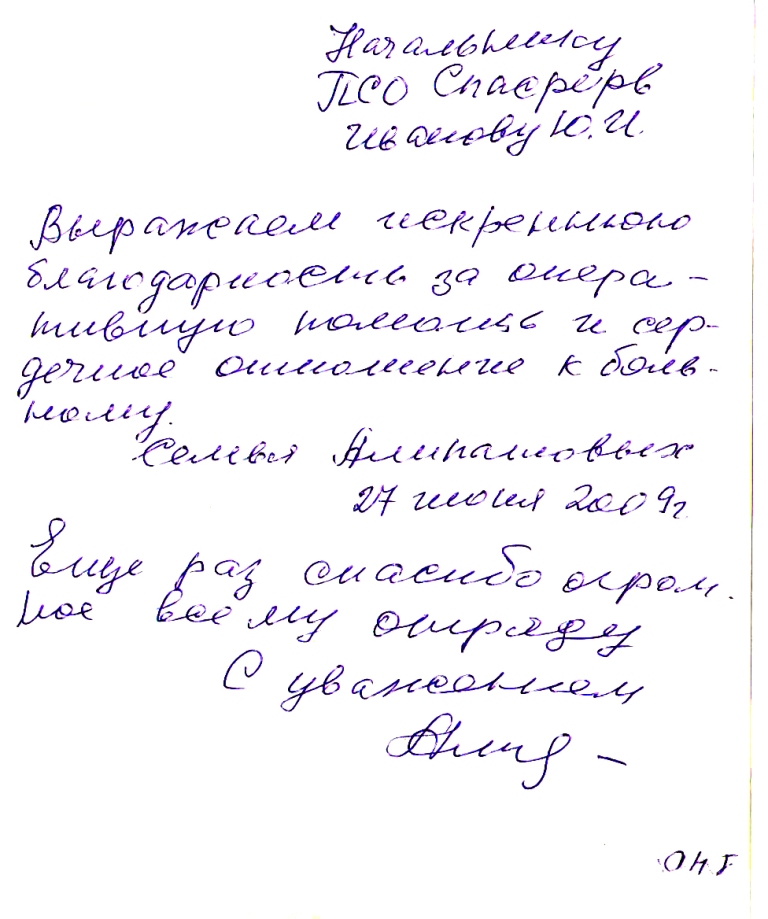 Начальнику
ПСО Спасрерв
Иванову Ю.И.
Выражаем искреннюю
благодарность за опера-
тивную помощь и сер-
дечное отношение к боль-
ному.
Семья Алипашовых
27 июня 2009г
Еще раз спасибо огром.
ное всему отряду
С уважением